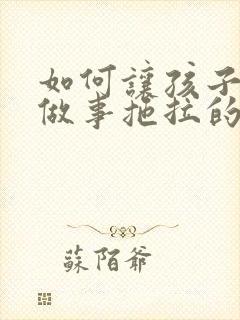 如何讓孩子
做事拖拉的
蘇陌爺